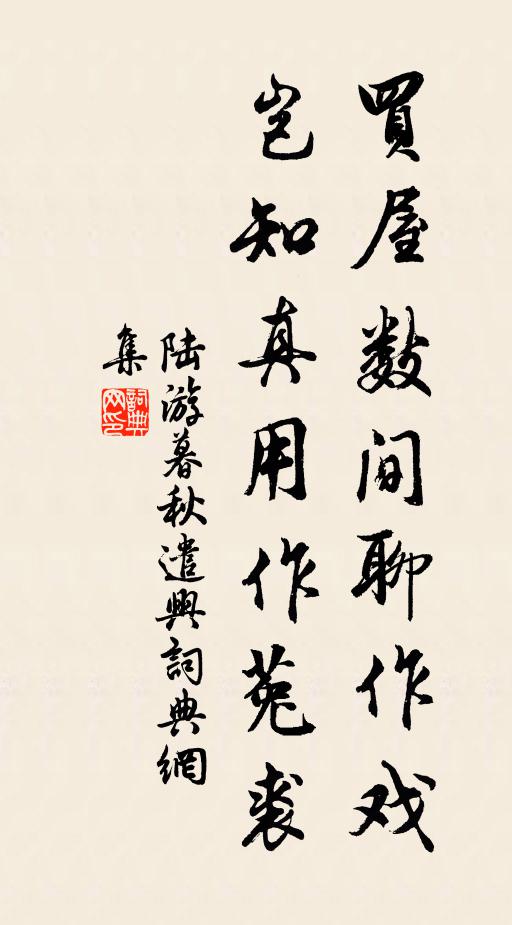 買屋数间聊作戏
岂知真用作菟裘
陆游暮秋遣興詞典網
集
詞典
网印